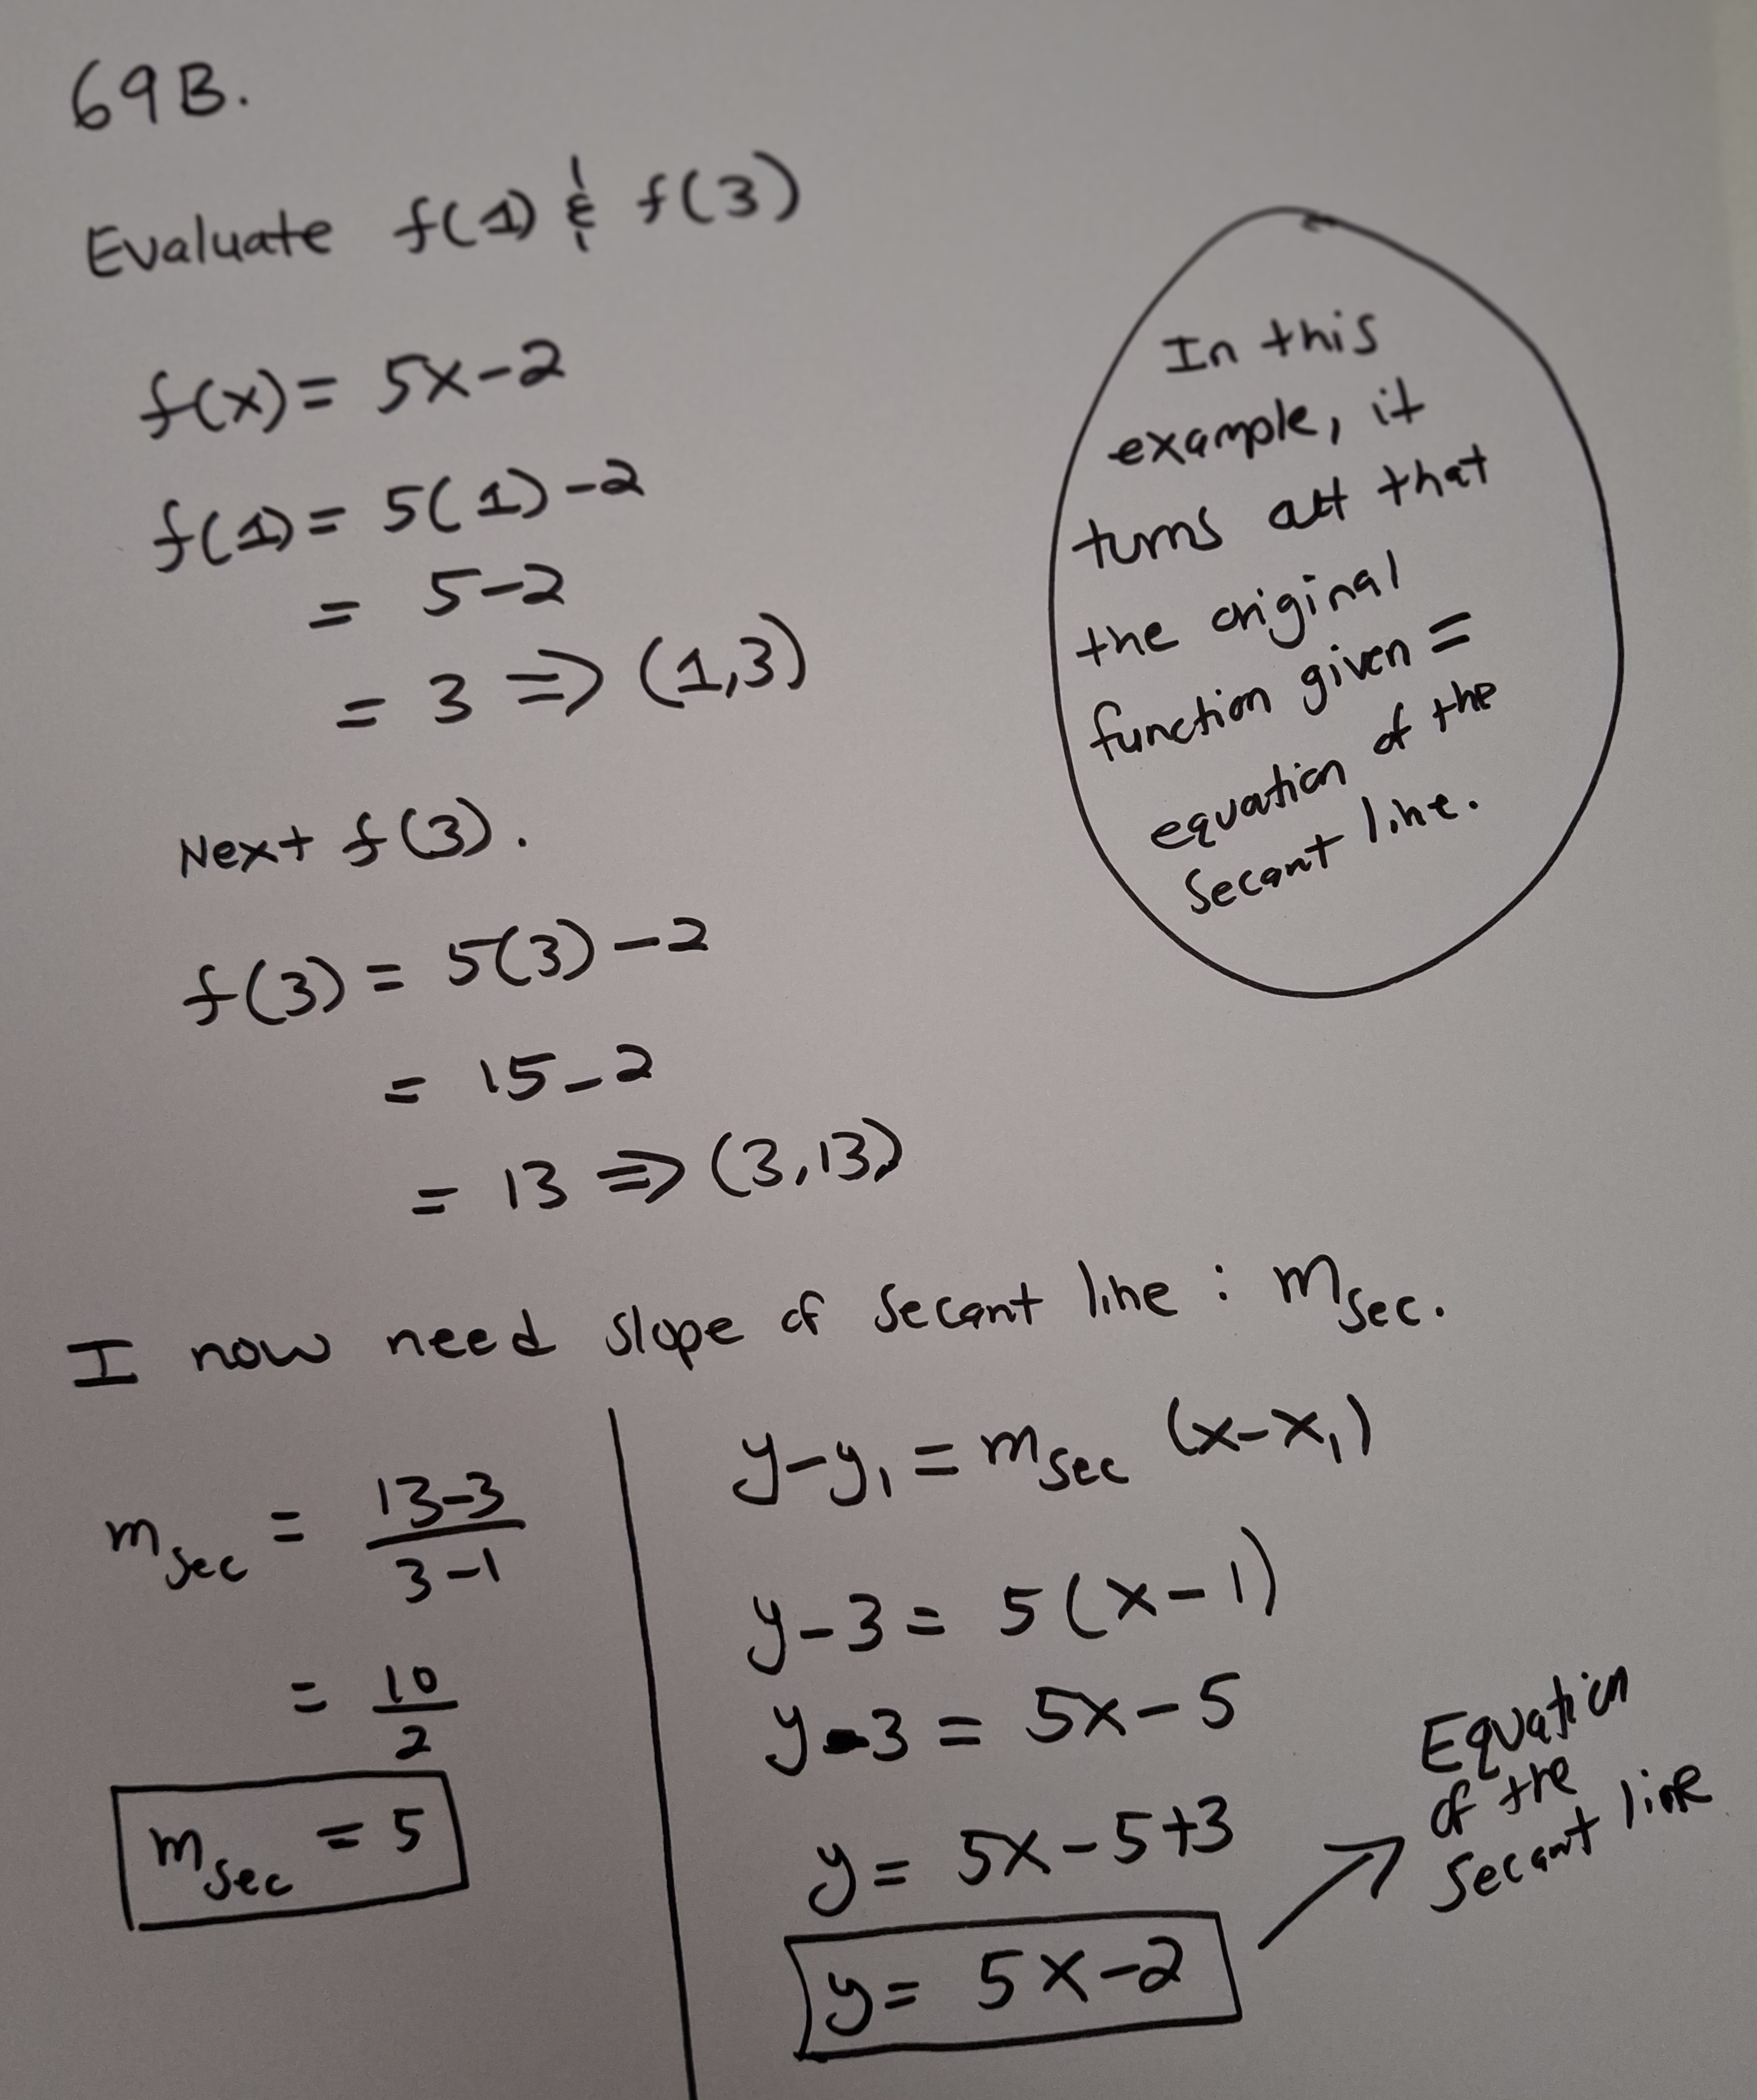 69B.
Evaluate f(1) & f(3)
f(x) = 5x-2
f(1) = 5(1)-2
= 5-2
= 3 => (1,3)
Next f(3).
f(3) = 5(3)-2
= 15-2
= 13 => (3,13)
In this
example, it
turns out that
the original
function given =
equation of the
secant line.
I now need slope of secant line : m_sec.
m_sec = (13-3)/(3-1)
= 10/2
m_sec = 5
y-y₁ = m_sec (x-x₁)
y-3 = 5(x-1)
y-3 = 5x-5
y = 5x-5+3
y = 5x-2
Equation
of the
secant line